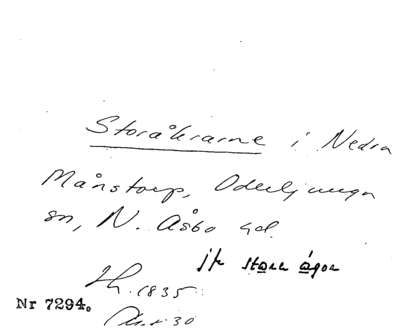 Storåkrarne i Nedra
Månstorp, Oderljunga
sn, N. Åsbo hd.
jfr stora ågor
Lh. 1835
Nr 7294.
Akt 30